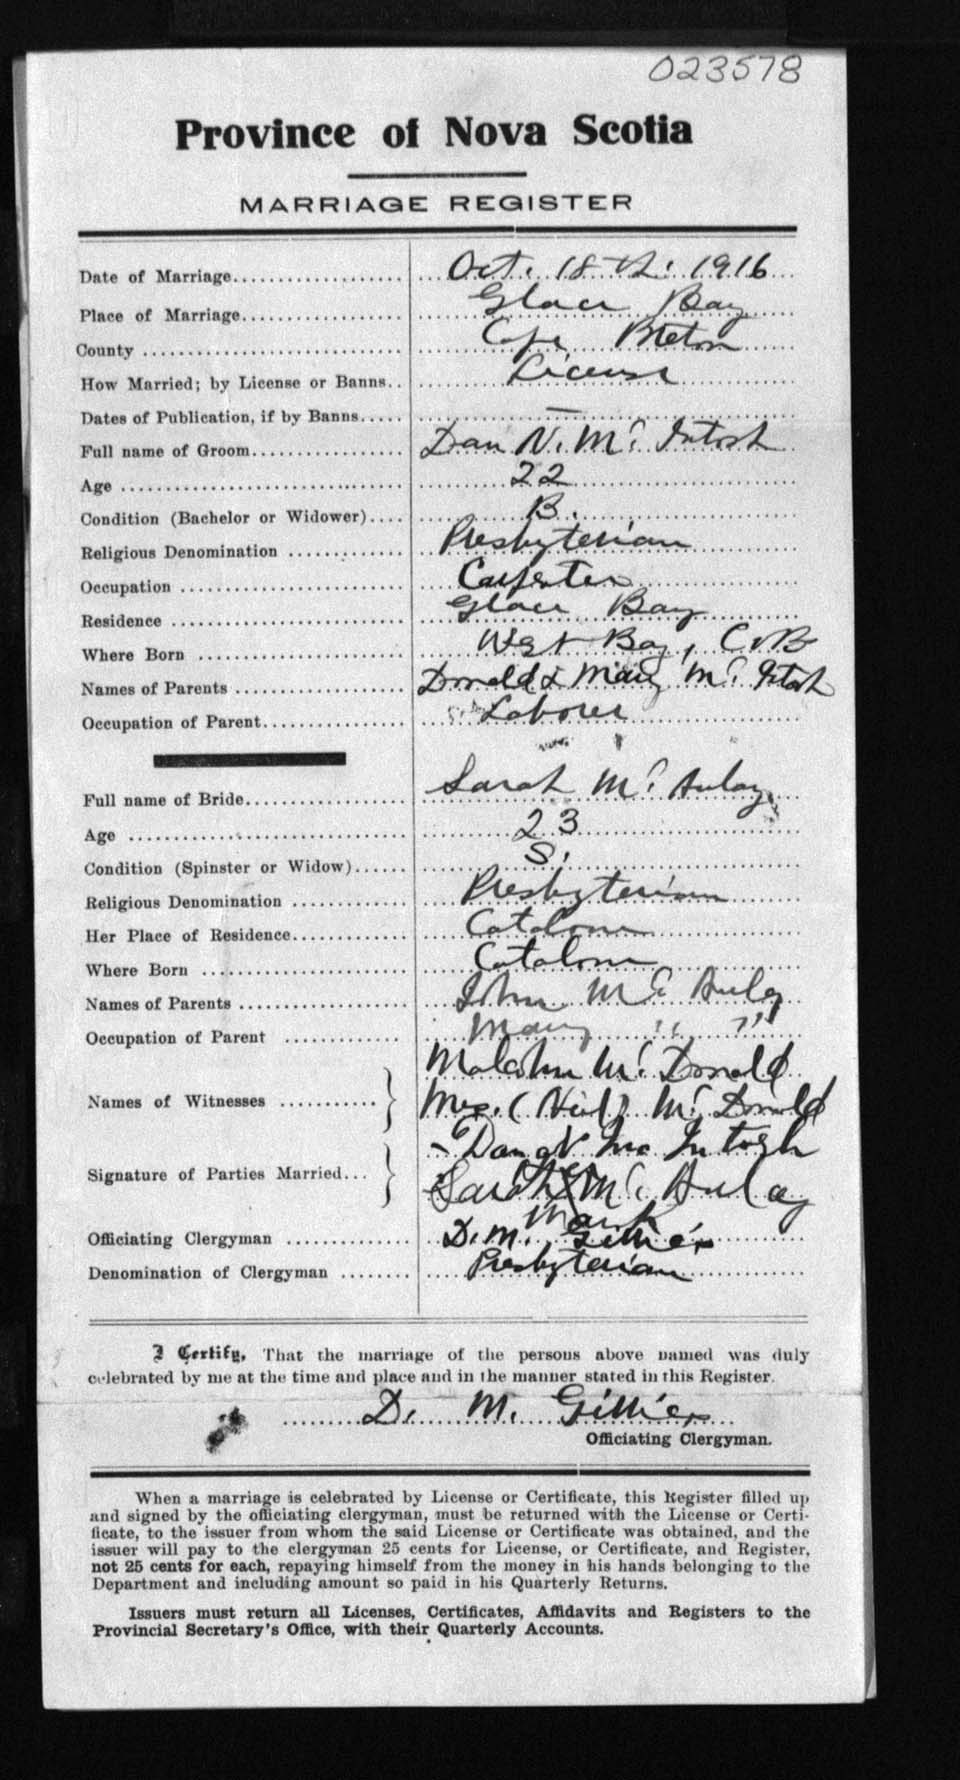 023578
Province of Nova Scotia
MARRIAGE REGISTER
Date of Marriage.................... Oct. 18th. 1916
Place of Marriage.................. Glace Bay
County .............................. Cape Breton
How Married; by License or Banns.. License
Dates of Publication, if by Banns..... —
Full name of Groom................. Dan N. Mc Intosh
Age ................................. 22
Condition (Bachelor or Widower).... B.
Religious Denomination ............. Presbyterian
Occupation .......................... Carpenter
Residence ........................... Glace Bay
Where Born ........................ West Bay, C.B
Names of Parents ................... Donald & Mary Mc Intosh
Occupation of Parent................ Laborer
Full name of Bride................... Sarah Mc Aulay
Age ................................. 23
Condition (Spinster or Widow)...... S.
Religious Denomination ............. Presbyterian
Her Place of Residence.............. Catalone
Where Born ........................ Catalone
Names of Parents ................... John Mc Aulay
Occupation of Parent ............. Mary " "
Malcolm Mc Donald
Names of Witnesses ........... } Mrs. (Neil) Mc Donald
Dan N Mc Intosh
Signature of Parties Married... } Sarah X Mc Aulay
Mark
Officiating Clergyman .............. D. M. Gillies
Denomination of Clergyman ........ Presbyterian
I Certify, That the marriage of the persons above named was duly
celebrated by me at the time and place and in the manner stated in this Register.
D. M. Gillies
Officiating Clergyman.
When a marriage is celebrated by License or Certificate, this Register filled up
and signed by the officiating clergyman, must be returned with the License or Certi-
ficate, to the issuer from whom the said License or Certificate was obtained, and the
issuer will pay to the clergyman 25 cents for License, or Certificate, and Register,
not 25 cents for each, repaying himself from the money in his hands belonging to the
Department and including amount so paid in his Quarterly Returns.
Issuers must return all Licenses, Certificates, Affidavits and Registers to the
Provincial Secretary's Office, with their Quarterly Accounts.